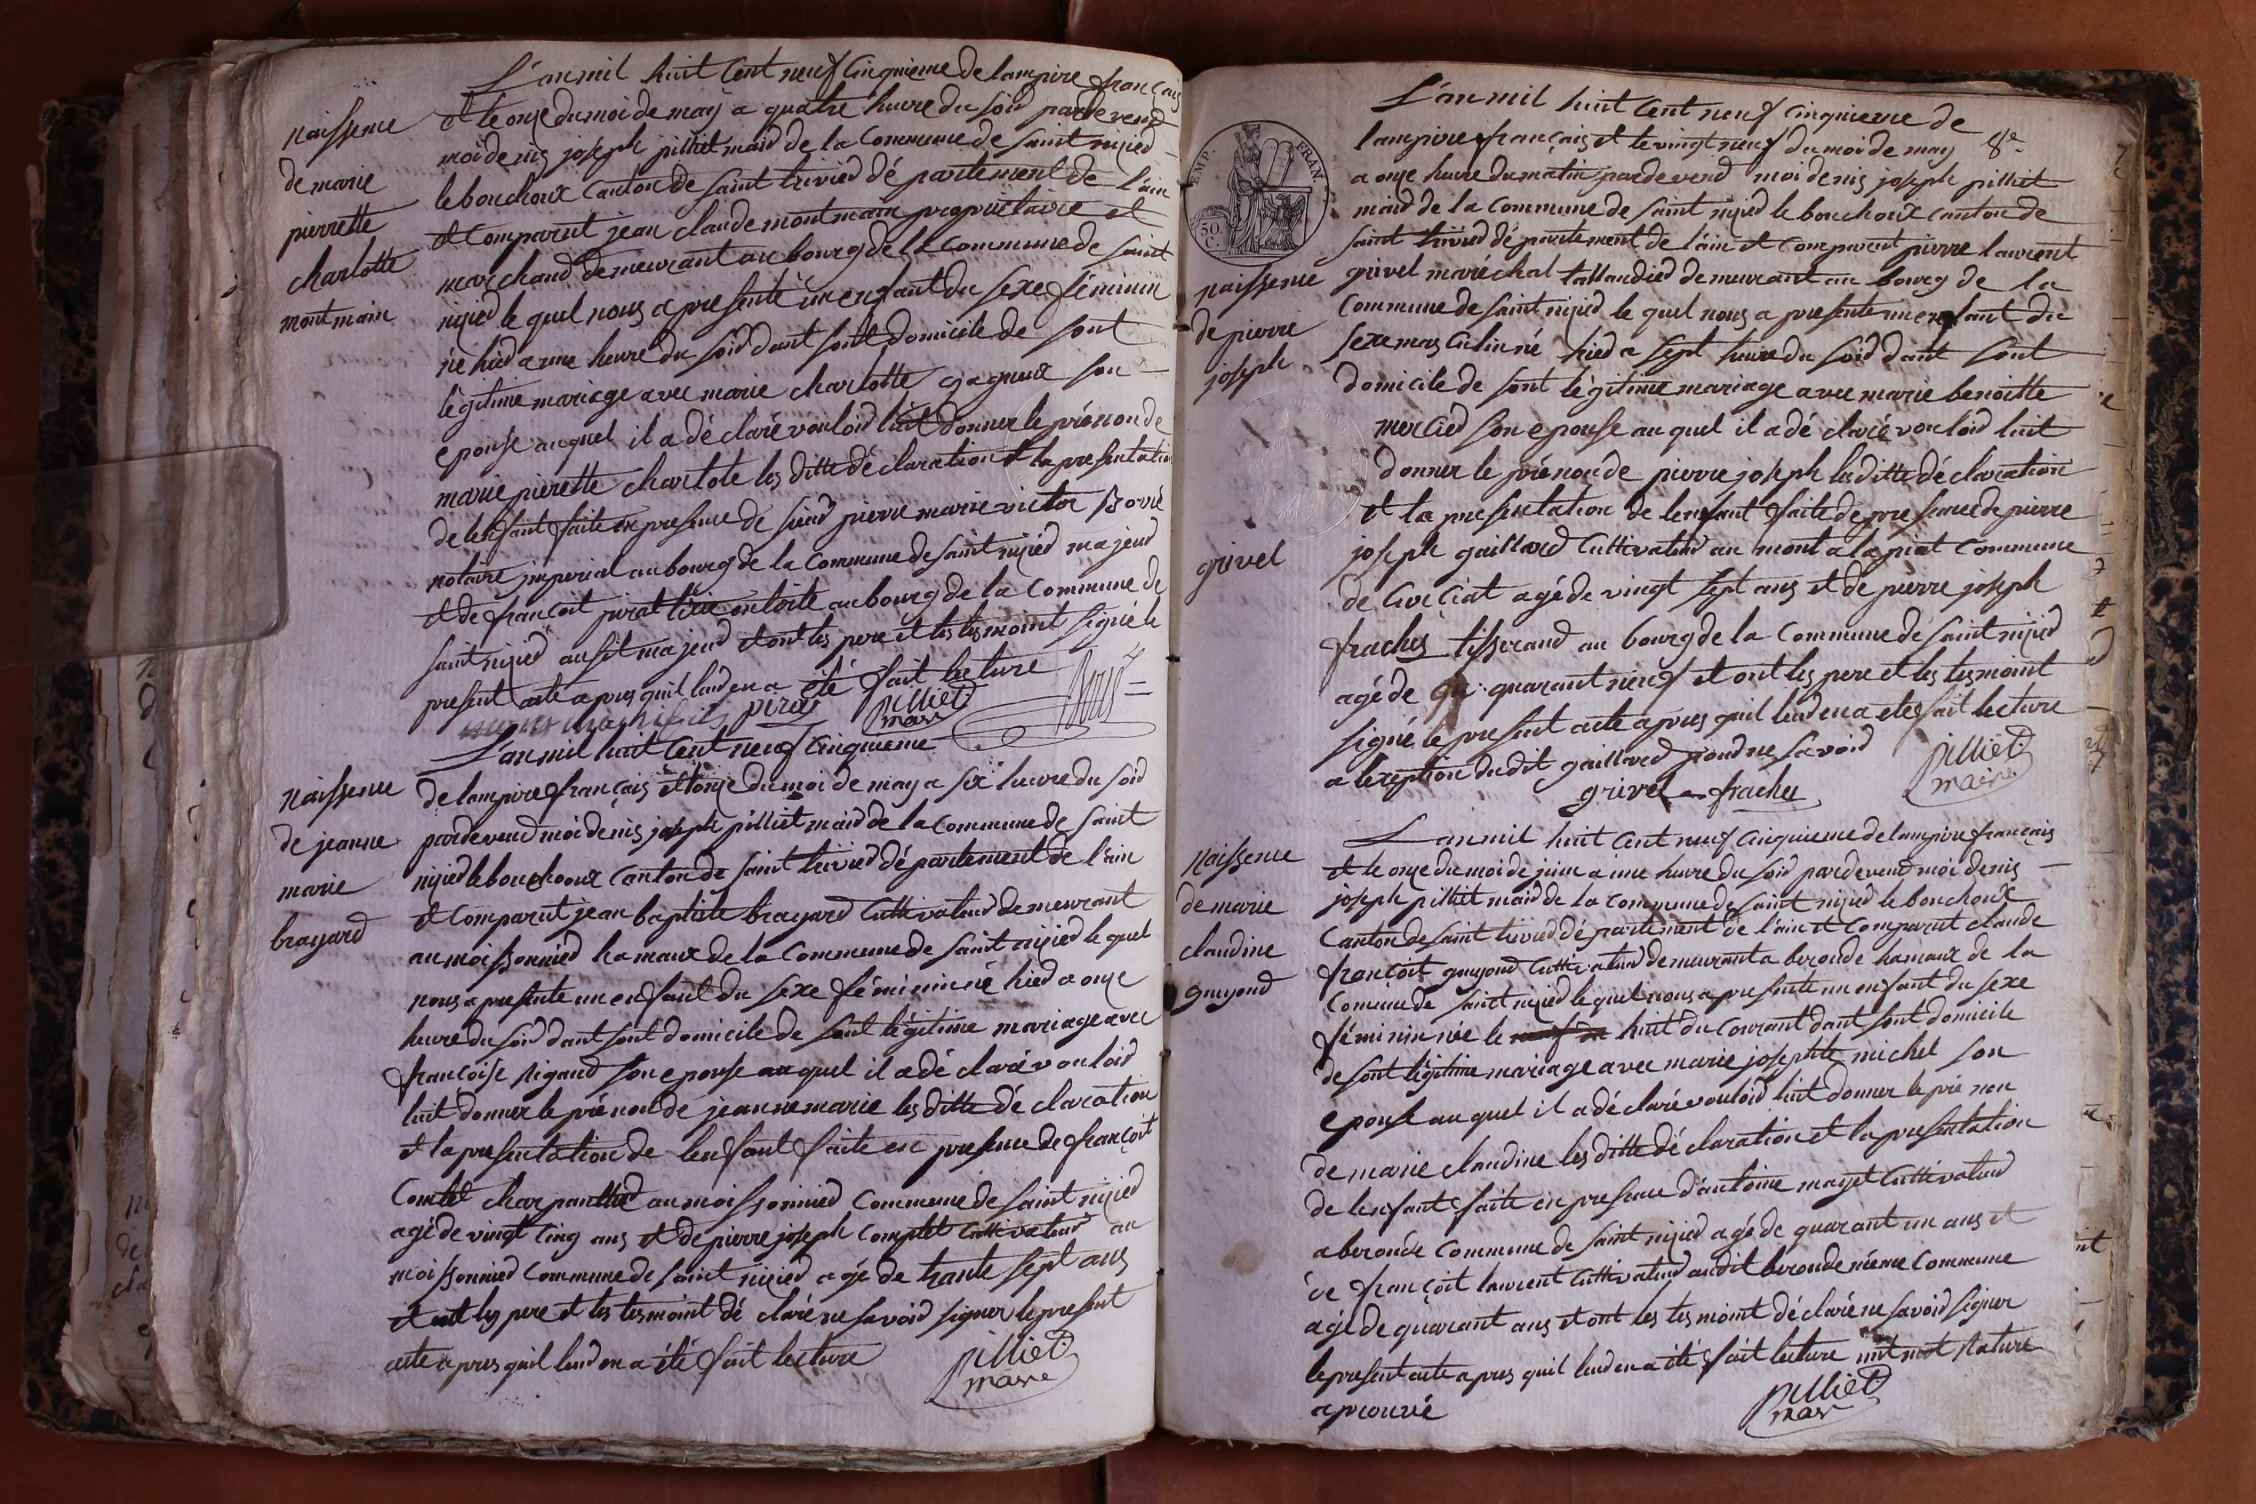 L'an mil huit Cent neuf Cinquieme de lampire français
naissence
de marie
pierrette
charlotte
montmain
et le onze du moi de may a quatre heure du soid pardevend
moi denis joseph pilliet maid de la Commune de saint nizied
le bouchoux Canton de saint trivied dé partement de l'ain
et Comparut jean claude montmain propriétaire et
marchand demeurant au bourg de la Commune de saint
nizied le quel nous a presenté un enfant du sexe féminin
né hied a une heure du soid dant sont domicile de sont
légitime mariage avec marie charlotte gagneux son
epouse au quel il a dé claré vouloid luit donner le prénon de
marie pierette charlote les ditte dé claration et la presentation
de lenfant faite en presence de sieud pierre marie victor
notaire imperial au bourg de la Commune de saint nizied majeud
et de françoit au bourg de la Commune de
saint nizied ausit majeud et ont les pere et les tesmoint signé le
present acte a pres quil leud en a été fait lecture
piroz pilliet
maire
L'an mil huit Cent neuf Cinquieme
naissence
de jeanne
marie
brayard
de lampire français et le onze du moi de may a six heure du soid
pardevend moi denis joseph pilliet maid de la Commune de saint
nizied le bouchoux Canton de saint trivied dé partement de l'ain
et Comparut jean baptiste brayard Cultivateud demeurant
au moissonnied hamaux de la Commune de saint nizied le quel
nous a presente un enfant du sexe féminin né hied a onze
heure du soid dant sont domicile de sont légitime mariage avec
françoise rigaud son epouse au quel il a dé claré vouloid
luit donner le prénon de jeanne marie les ditte dé claration
et la presentation de lenfant faite en presence de françoit
Comtet charpantied au moissonnied Commune de saint nizied
agé de vingt Cinq ans et de pierre joseph Comptet Cultivateud au
moissonnied Commune de saint nizied agé de trante sept ans
et ont les pere et les tesmoint dé claré ne savoid signer le present
acte a pres quil leud en a été fait lecture
pilliet
maire
8e
L'an mil huit Cent neuf Cinquieme de
lampire français et le vingt neuf du moi de may
EMP. FRAN.
50.
C.
naissence
de pierre
joseph
grivel
a onze heure du matin pardevend moi denis joseph pilliet
maid de la Commune de saint nizied le bouchoux Canton de
saint trivied dé partement de l'ain et Comparut pierre laurent
grivel maréchal tallandied demeurant au bourg de la
Commune de saint nizied le quel nous a presente un enfant du
sexe masculin né hied a sept heure du soid dant sont
domicile de sont légitime mariage avec marie benoitte
mercied son epouse au quel il a dé claré vouloid luit
donner le prénon de pierre joseph les ditte dé claration
et la presentation de lenfant faite de presence de pierre
joseph gaillard Cultivateud au mont a la piat Commune
de Curciat agé de vingt sept ans et de pierre joseph
frachey tisserand au bourg de la Commune de saint nizied
agé de quarant neuf et ont les pere et les tesmoint
signé le present acte a pres quil leud en a eté fait lecture
a lexeption dudit gaillard pond ne savoid
grivel frachey pilliet
maire
L'an mil huit Cent neuf Cinquieme de lampire français
naissence
de marie
claudine
guyond
et le onze du moi de juin a une heure du soid pardevend moi denis
joseph pilliet maid de la Commune de saint nizied le bouchoux
Canton de saint trivied dé partement de l'ain et Comparut claude
françoit guyond Cultivateud demeurant a beronde hamaux de la
Commune de saint nizied le quel nous a presente un enfant du sexe
féminin née le huit du Courant dant sont domicile
de sont légitime mariage avec marie josephte michel son
epouse au quel il a dé claré vouloid luit donner le pré non
de marie claudine les ditte dé claration et la presentation
de lenfant faite en presence d'antoine mayet Cultivateud
a beronde Commune de saint nizied agé de quarant un ans et
de françoit laurent Cultivateud audit beronde méme Commune
agé de quarant ans et ont les tesmoint dé claré ne savoid signer
le present acte a pres quil leud en a été fait lecture
aprouvé
pilliet
maire